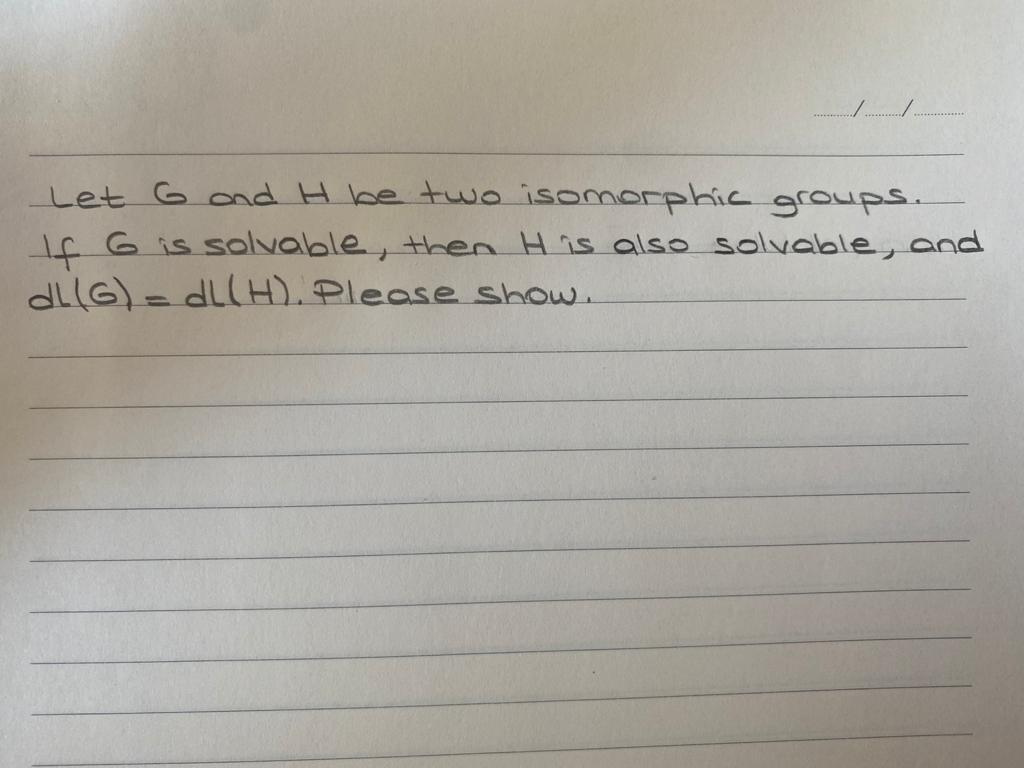 ...../...../.....
Let G and H be two isomorphic groups.
If G is solvable, then H is also solvable, and
dl(G) = dl(H). Please show.